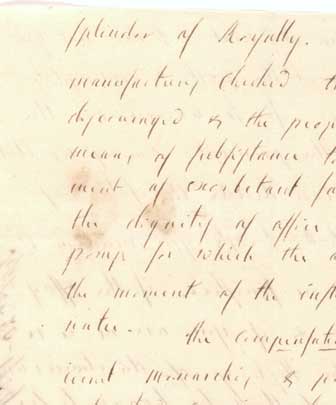 splendor of Royalty.
manufactury checked th
discouraged & the peop
means of subsistance to
ment of exorbetant sa
the dignity of office
pomp for which the a
the moment of the inst
nater. the compensat
cient monarchis & p